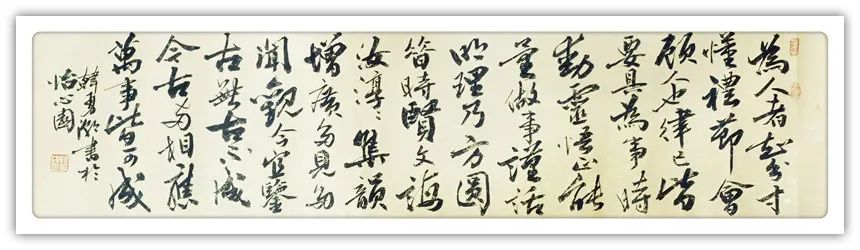 為人者知分寸
懂禮節會
顧人也律己皆
要具為事時
勤靈悟正能
量做事謹話
明理乃方圓
昔時賢文誨
汝諄諄集韻
增廣多見多
聞觀今宜鑒
古無古不成
今古相應
萬事皆可成
韓勇書於
怡心園